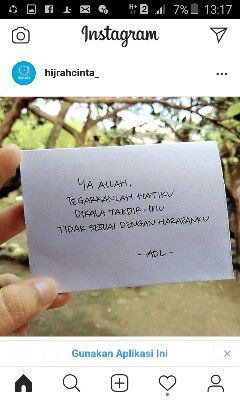 7% 13:17
Instagram
hijrahcinta_
YA ALLAH,
TEGARKANLAH HATIKU
DIKALA TAKDIR-MU
TIDAK SESUAI DENGAN HARAPANKU
- ADL -
Gunakan Aplikasi Ini